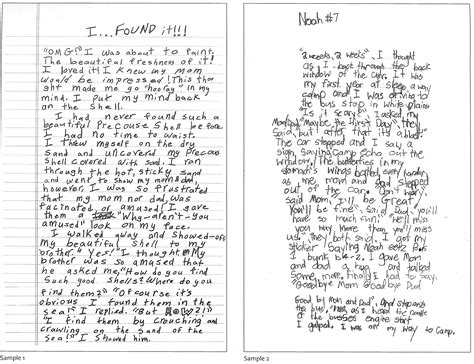 I...FOUND it!!!
"OMG!" I was about to faint.
The beautiful freshness of it!
I loved it! I knew my mom
would be impressed! This tho
ght made me go "hooray" in my
mind. I put my mind back
on the shell.
I had never found such a
beautiful Precouse Shell before
I had no time to waist.
I threw myself on the dry
sand and uncovered my Precous
Shell covered with sand. I ran
through the hot, sticky sand
and went to show my mom & dad,
however, I was so frustrated
that my mom nor dad, was
facinated or amused! I gave
them a "Why-aren't-you
amused" look on my face.
I walked away and showed-off
my beautiful shell to my
brother. "Yes!" I thought. My
brother was so amused that
he asked me, "How do you find
Such good shells? Where do you
find them?" "Of course it's
obvious I found them in the
sea!" I replied. "But
"I find them by crouching and
crawling on the sand of the
Sea!" I showed him.
Sample 1
Noah #7
"2 weeks, 2 weeks". I thought
as I back through the back
window of the car. It was
my first year at sleep away
camp and I was driving to
the bus stop in white plains
Is it scary? I asked my
Mom, "Maybe the first Day", they
Said "but after that it's a blast".
The car stopped and I say a
sign saying Camp Echo out the
window. The butterflies in my
stomach's wings batted even harder
as me, mom and dad stepped
out of the car. "Don't worry"
said Mom, "I'll be Great,
You'll be fine", said Dad, "you'll
have so much fun". "We'll miss
you way more than you'll miss
us." They both said. I got my
sticker saying Noah
bunk 4-2. I gave Mom
and dad a hug and talked
some more, finally I had to say,
"Goodbye Mom Good bye Dad
Good by mom and Dad", and stepped on
the bus, as I heard the rumble
of the busses engine start
I gulped. I was off my way to Camp.
Sample 2